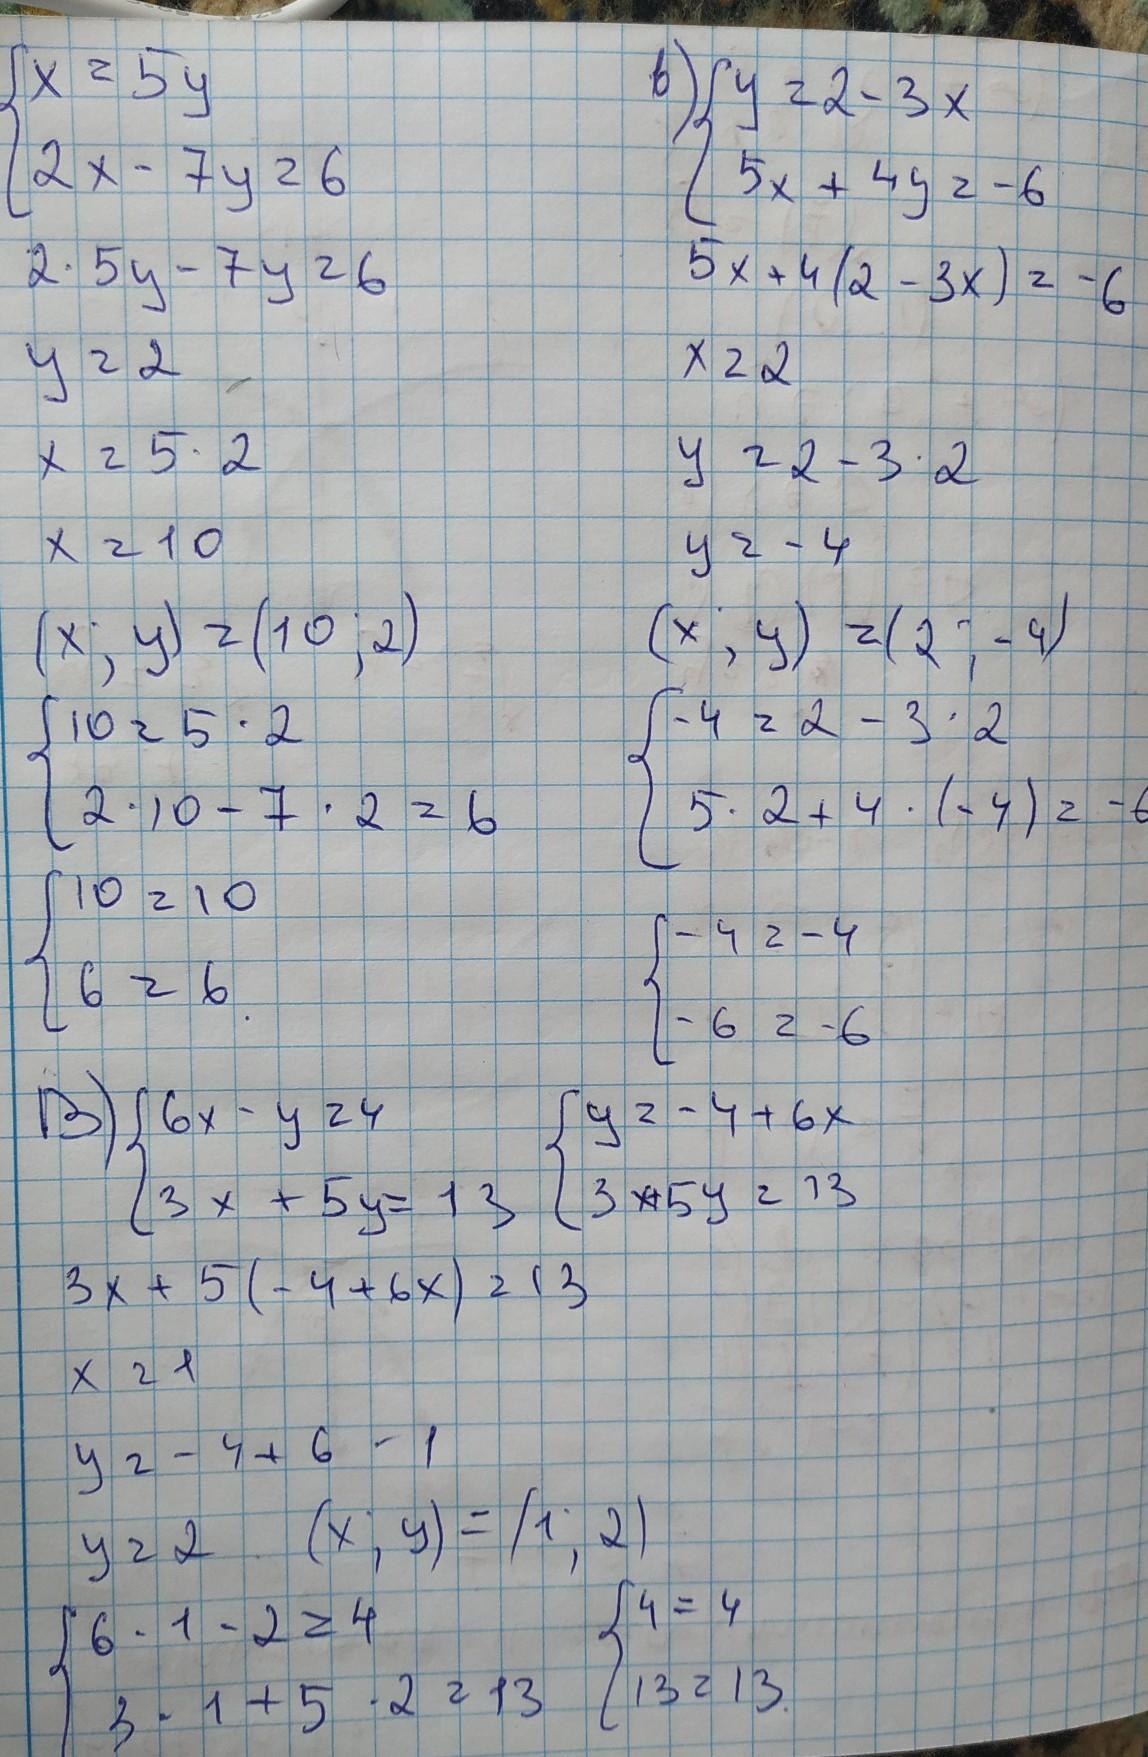 x = 5y
2x - 7y = 6
2 · 5y - 7y = 6
y = 2
x = 5 · 2
x = 10
(x; y) = (10; 2)
10 = 5 · 2
2 · 10 - 7 · 2 = 6
10 = 10
6 = 6.
б) y = 2 - 3x
5x + 4y = -6
5x + 4(2 - 3x) = -6
x = 2
y = 2 - 3 · 2
y = -4
(x; y) = (2; -4)
-4 = 2 - 3 · 2
5 · 2 + 4 · (-4) = -6
-4 = -4
-6 = -6
В) 6x - y = 4
3x + 5y = 13
y = -4 + 6x
3x + 5y = 13
3x + 5(-4 + 6x) = 13
x = 1
y = -4 + 6 - 1
y = 2 (x; y) = (1; 2)
6 · 1 - 2 = 4
3 · 1 + 5 · 2 = 13
4 = 4
13 = 13.